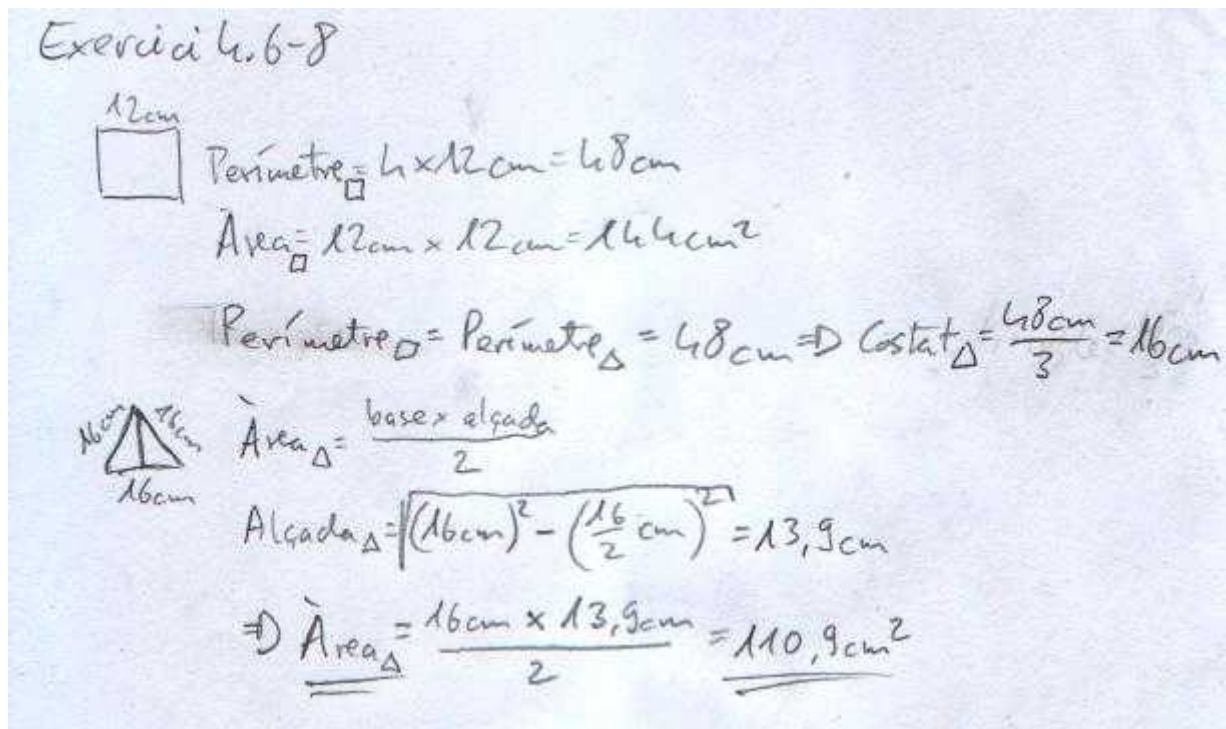 Exercici 4.6-8
12cm
Perímetre□ = 4 x 12 cm = 48 cm
Àrea□ = 12cm x 12 cm = 144cm²
Perímetre□ = Perímetre△ = 48cm ⇒ Costat△ = 48cm/3 = 16cm
16cm 16cm
16cm
Àrea△ = base x alçada/2
Alçada△ = √((16cm)² - (16/2 cm)²) = 13,9cm
⇒ Àrea△ = 16cm x 13,9cm/2 = 110,9cm²